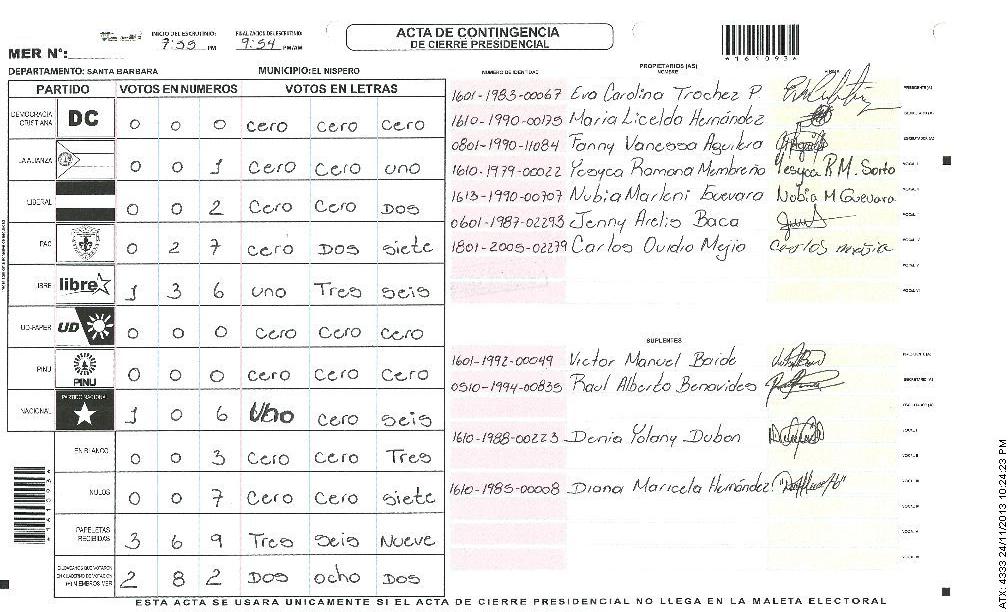 INICIO DEL ESCRUTINIO: FINALIZACION DEL ESCRUTINIO:
7:55 PM 9:54 PM/AM
ACTA DE CONTINGENCIA
DE CIERRE PRESIDENCIAL
*161093*
MER N°:
DEPARTAMENTO: SANTA BARBARA MUNICIPIO: EL NISPERO
PARTIDO VOTOS EN NUMEROS VOTOS EN LETRAS
DEMOCRACIA CRISTIANA DC 0 0 0 cero cero cero
LA ALIANZA 0 0 1 cero cero uno
LIBERAL 0 0 2 cero cero Dos
PAC 0 2 7 cero Dos siete
LIBRE libre 1 3 6 uno Tres seis
UD-FAPER UD 0 0 0 cero cero cero
PINU PINU 0 0 0 cero cero cero
NACIONAL PARTIDO NACIONAL 1 0 6 Uno cero seis
EN BLANCO 0 0 3 cero cero Tres
NULOS 0 0 7 cero cero siete
PAPELETAS RECIBIDAS 3 6 9 Tres seis Nueve
CIUDADANOS QUE VOTARON EN CUADERNO DE VOTACION (+) MIEMBROS MER 2 8 2 Dos ocho Dos
PROPIETARIOS (AS)
NUMERO DE IDENTIDAD NOMBRE FIRMA
1601-1983-00067 Eva Carolina Trochez P. PRESIDENTE(A)
1610-1990-00175 Maria Licelda Hernández SECRETARIO (A)
0801-1990-11084 Fanny Vanessa Aguilera ESCRUTADOR (A)
1610-1979-00022 Yesyca Ramona Membreño Yesyca R M. Sorto VOCAL I
1613-1990-00707 Nubia Marleni Guevara Nubia M Guevara VOCAL II
0601-1987-02293 Jenny Arelis Baca VOCAL III
1801-2005-02279 Carlos Ovidio Mejia Carlos mejia VOCAL IV
VOCAL V
VOCAL VI
SUPLENTES
1601-1992-00049 Victor Manuel Baide PRESIDENTE (A)
0510-1994-00835 Raul Alberto Benavides SECRETARIO (A)
ESCRUTADOR (A)
1610-1988-00223 Denia Yolany Dubon VOCAL I
VOCAL II
1610-1985-00008 Diana Maricela Hernández VOCAL III
ESTA ACTA SE USARA UNICAMENTE SI EL ACTA DE CIERRE PRESIDENCIAL NO LLEGA EN LA MALETA ELECTORAL
4333 24/11/2013 10:24:23 PM